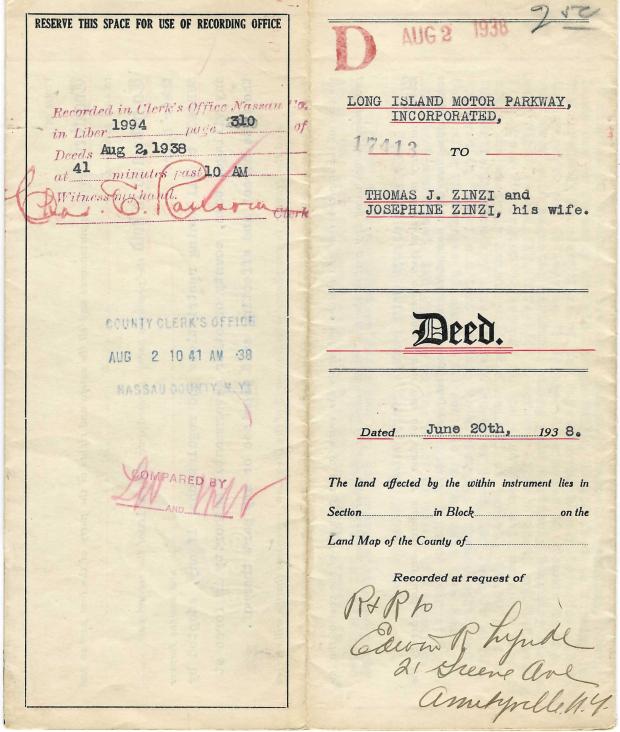 RESERVE THIS SPACE FOR USE OF RECORDING OFFICE
Recorded in Clerk's Office Nassau Co.
in Liber 1994 page 310 of
Deeds Aug 2, 1938
at 41 minutes past 10 AM
Witness my hand.
Chas. E. Ransom Clerk
COUNTY CLERK'S OFFICE
AUG 2 10 41 AM '38
NASSAU COUNTY, N.Y.
COMPARED BY
AND
D AUG 2 1938
2 50
LONG ISLAND MOTOR PARKWAY,
INCORPORATED,
17413
TO
THOMAS J. ZINZI and
JOSEPHINE ZINZI, his wife.
Deed.
Dated June 20th, 1938.
The land affected by the within instrument lies in
Section in Block on the
Land Map of the County of
Recorded at request of
R & R to
Edwin R.
21 Greene Ave
Amityville N.Y.